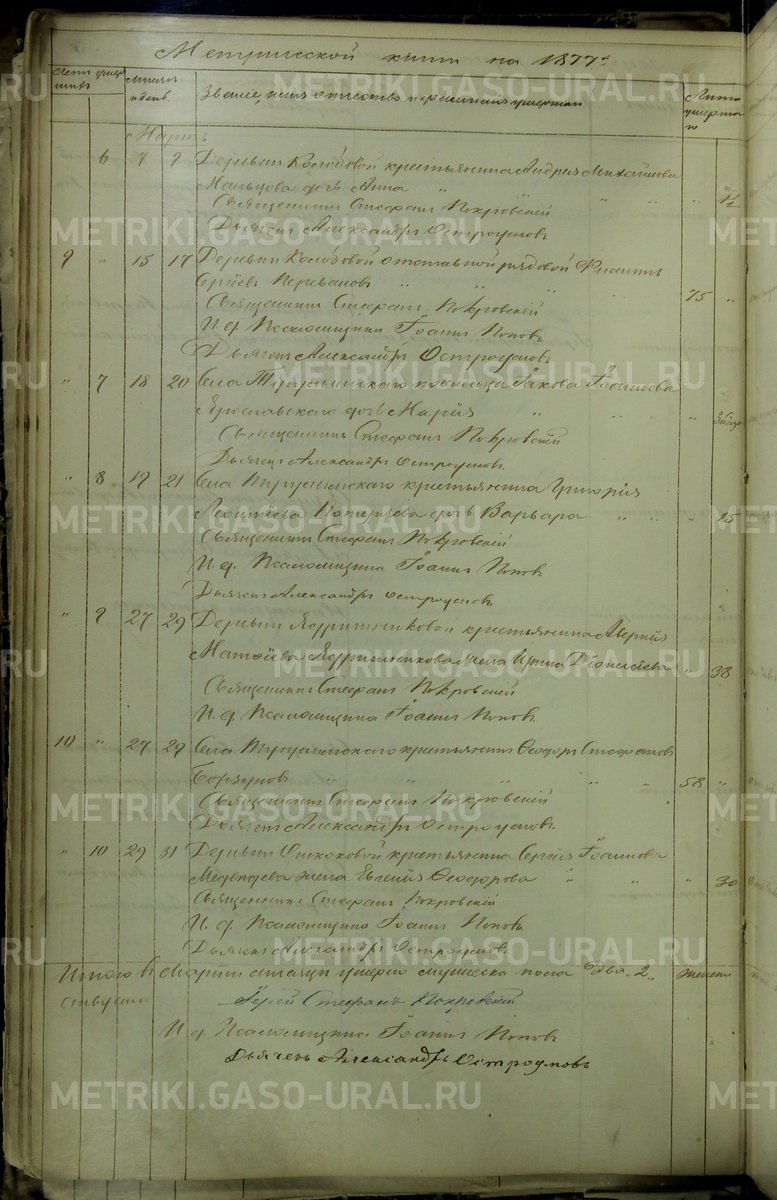 Метрической книги на 1877 г.
Счетъ умершихъ
Мѣсяцъ и день
Званіе, имя отчество и фамилія умершаго
Лѣта умершаго
Мартъ
6 7 9 Деревни Колобовой крестьянина Андрея Михайлова
Мальцова дочь Анна " " " " ½
Священникъ Стефанъ Покровскій
Дьячекъ Александръ Остроумовъ
9 " 15 17 Деревни Колобовой отставной рядовой Филиппъ
Сергѣевъ " " " 75 "
Священникъ Стефанъ Покровскій
И. д. Псаломщика Іоаннъ Поповъ
Дьячекъ Александръ Остроумовъ
" 7 18 20 Села Тугулымскаго Іакова Іоаннова
Ярославскаго дочь Марія " " " "
Священникъ Стефанъ Покровскій
Дьячекъ Александръ Остроумовъ
" 8 19 21 Села Тугулымскаго крестьянина Григорія
Леонтіева дочь Варвара " " " 15
Священникъ Стефанъ Покровскій
И. д. Псаломщика Іоаннъ Поповъ
Дьячекъ Александръ Остроумовъ
" 9 27 29 Деревни Ядрышниковой крестьянина Аверкія
Матѳіева Ядрышникова жена Ирина Діонисіева " 38
Священникъ Стефанъ Покровскій
И. д. Псаломщика Іоаннъ Поповъ
10 " 27 29 Села Тугулымскаго крестьянинъ Ѳеодоръ Стефановъ
Борзуновъ " " " " " 58 "
Священникъ Стефанъ Покровскій
Дьячекъ Александръ Остроумовъ
" 10 29 31 Деревни крестьянина Сергія Іоаннова
Медвѣдева жена Евгенія Ѳеодорова " " " 30
Священникъ Стефанъ Покровскій
И. д. Псаломщика Іоаннъ Поповъ
Дьячекъ Александръ Остроумовъ
Итого въ Мартѣ мѣсяцѣ умерло мужеска пола два „2„ женска
Іерей Стефанъ Покровскій
И. д. Псаломщика Іоаннъ Поповъ
Дьячекъ Александръ Остроумовъ
METRIKI.GASO-URAL.RU